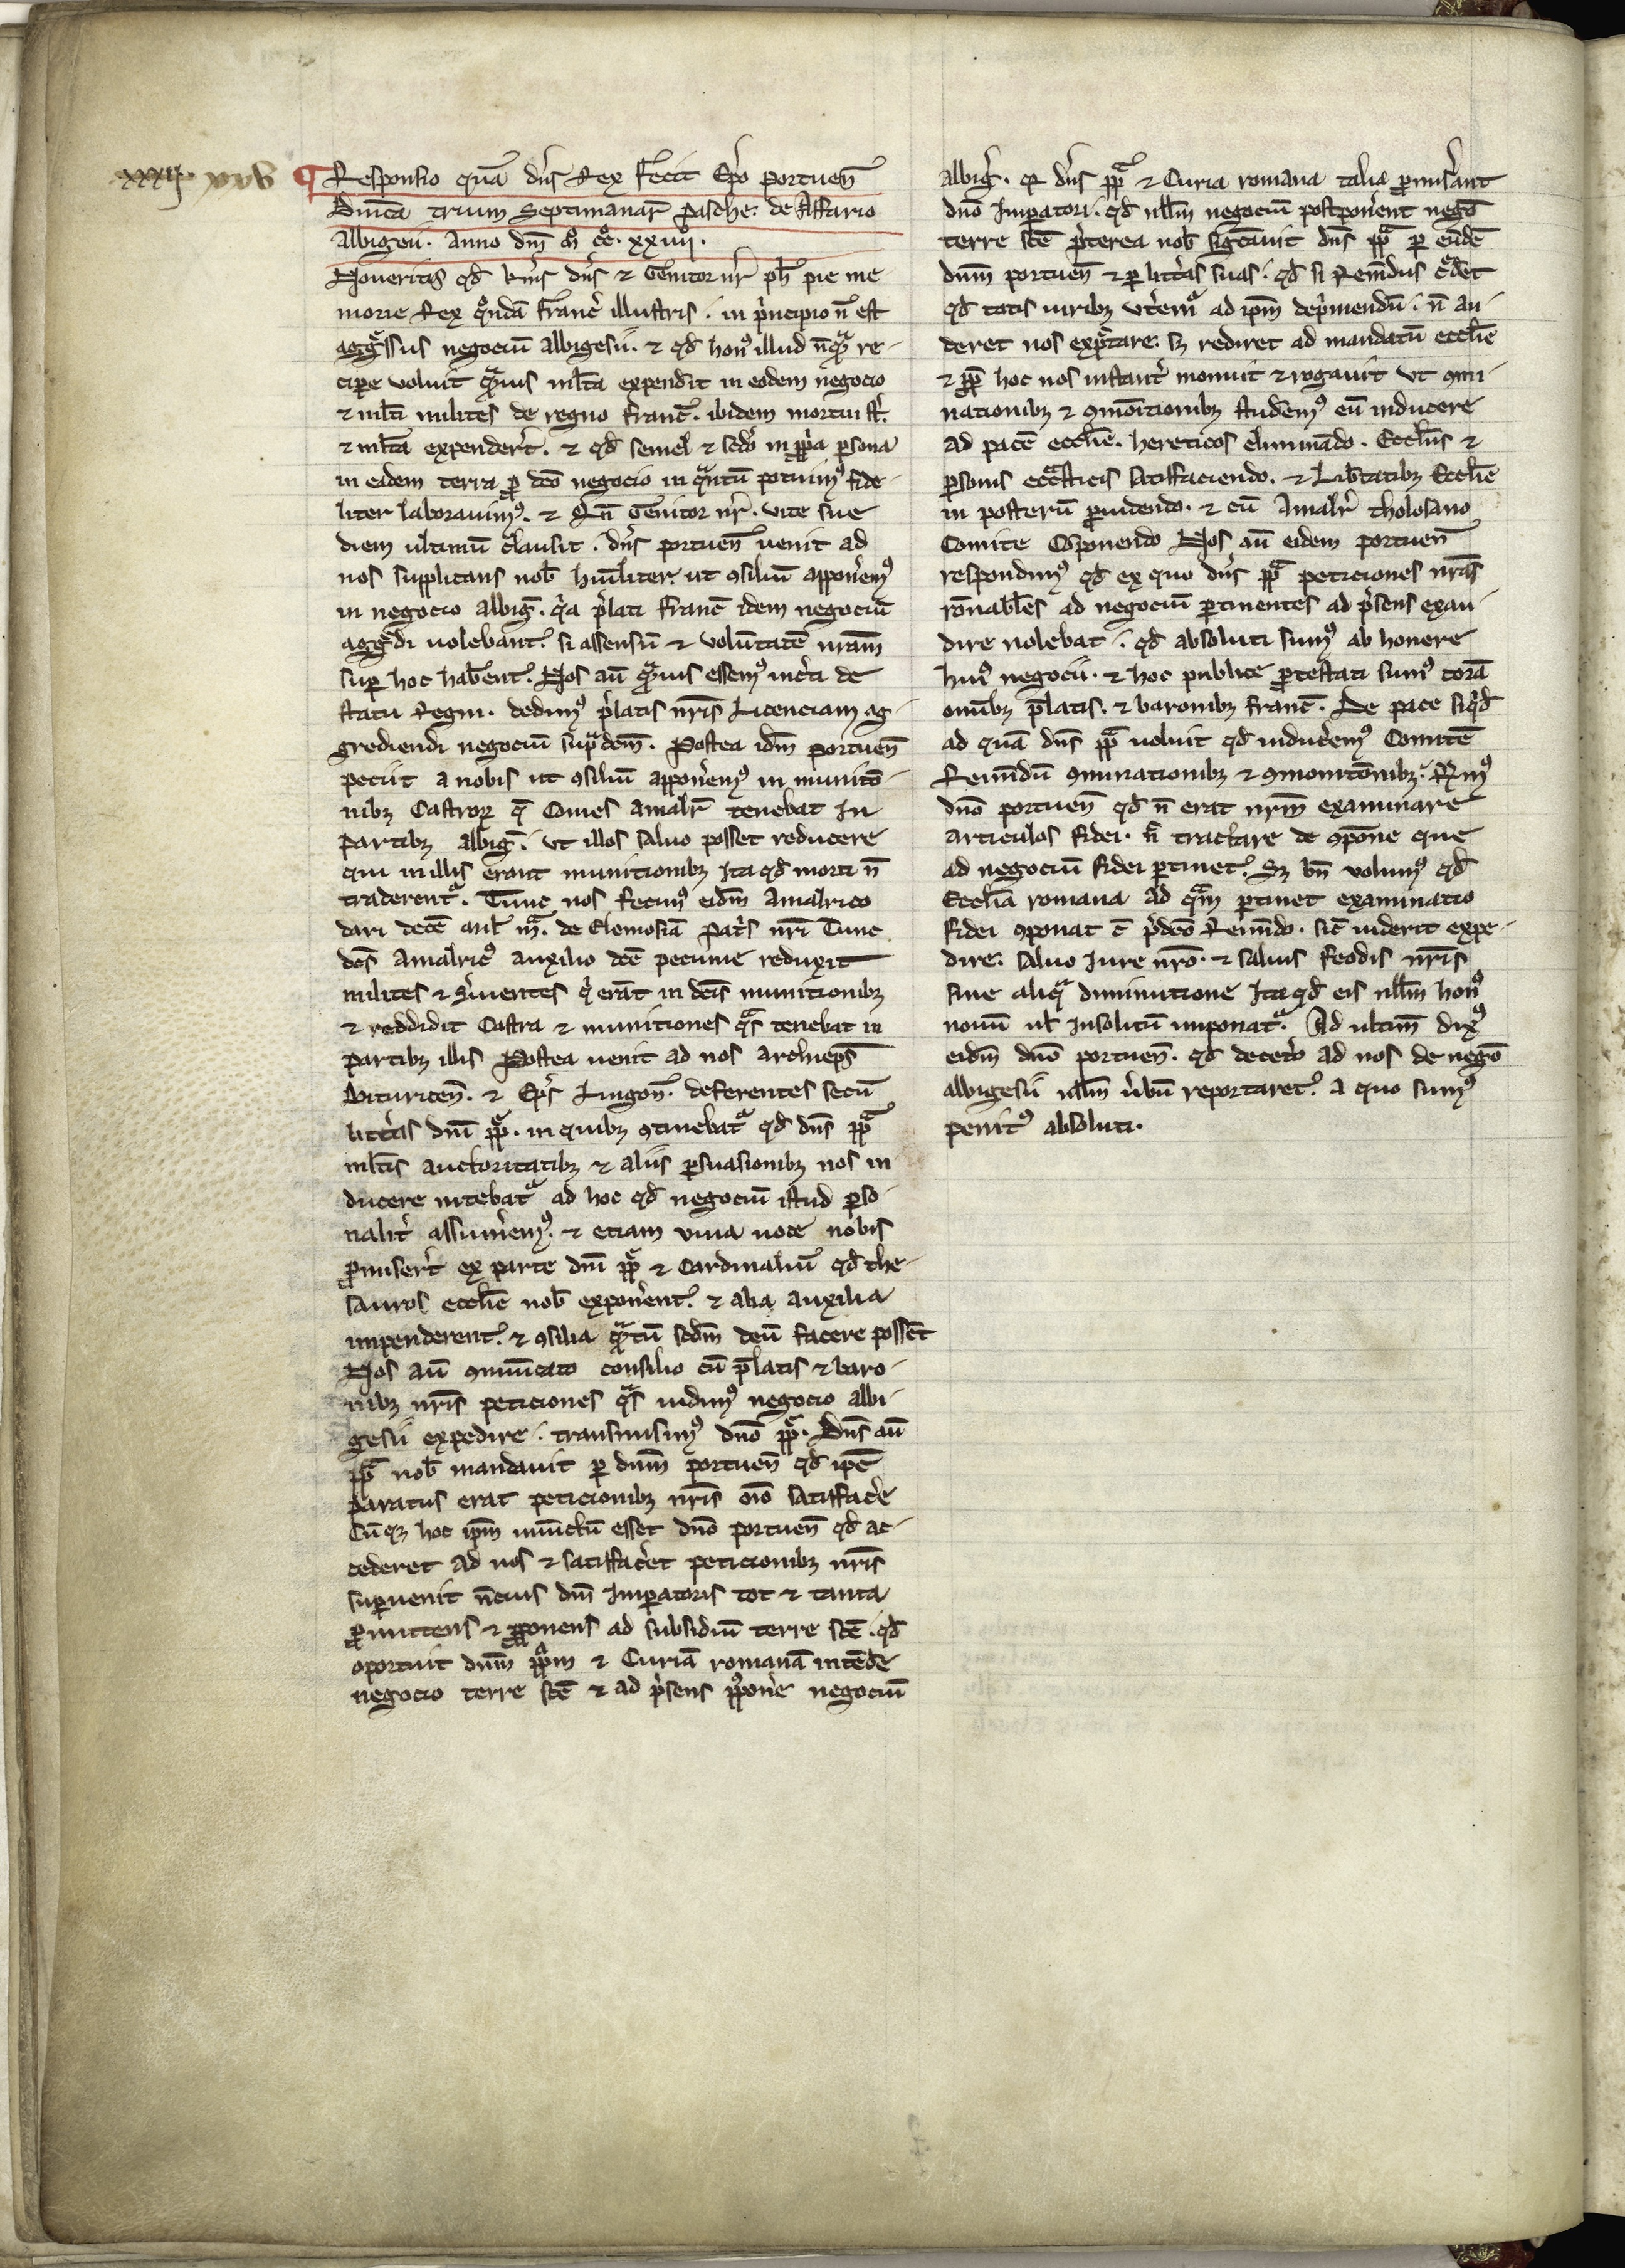 xxxij. xxv
¶ Responsio quā dñs Rex Fecit Ep̄o Portuen̄
Dnicā trium Septimanar̄ Pasche: de Affario
Albigeii. Anno dñi m̊. c̊c̊. xxiiij.
Noueritis qd̄ k̄mꝰ dñs ⁊ Genitor nr̄ ph̄ pie me-
morie Rex qͦndā Franc̄ illustris. in pͥncipio n̄ est
aggͣssus negociū albigesii. ⁊ qd̄ honꝰ illud nqͣ re-
cipe voluit qͣuis ml̄ta expendit in eodem negocio
⁊ ml̄ti milites de regno Franc̄. ibidem mortui st̄.
⁊ ml̄ta expender̄t. ⁊ qd̄ semel ⁊ scd̄o in ꝓpͥa ꝑsona
in eadem terra ꝓ dc̄o negocio in qͣntū potuimꝰ fide-
liter laborauimꝰ. ⁊ Qn̄ Genitor nr̄. vite sue
diem ultimū clausit. dñs portuen̄ uenit ad
nos supplicans nob̄ hūiliter. ut ꝯsiliū apponemꝰ
in negocio albiḡ. qͥa p̄lati Franc̄ idem negociū
aggͤdi uolebant. si assensū ⁊ volūtatē nr̄am
suꝑ hoc hab̄ent. Nos aū qͣuis essemꝰ inc̄ti de
statu Regni. dedimꝰ p̄latis nr̄is Licenciam ag-
grediendi negociū sup̄dc̄m. Postea idm̄ portuen̄
peciit a nobis ut ꝯsiliū apponemꝰ in munitō-
nibꝫ Castroꝝ q̄ Comes Amalr̄ tenebat In
partibꝫ albiḡ. ut illos saluo posset reducere
qui in illis erant munitionibꝫ Ita qd̄ morti n̄
traderentͣ. Tunc nos fecimꝰ eidm̄ Amalrico
dari decē mil̄ mͣ. de Elemosiā Patͥs nr̄i Tunc
dc̄s Amalricꝰ auxilio dc̄e pecunie reduxit
milites ⁊ s̄uientes qͥ erāt in dc̄is munitionibꝫ
⁊ reddidit Castra ⁊ munitiones qͣs tenebat in
partibꝫ illis Postea uenit ad nos archiep̄s
Bituricen̄. ⁊ Ep̄s Lingon̄. deferentes secū
litt̄as dñi pp̄. in quibꝫ ꝯtinebatͣ qd̄ dñs pp̄
ml̄tis auctoritatibꝫ ⁊ aliis ꝑsuasionibꝫ nos in-
ducere nitebatͣ ad hoc qd̄ negociū istud ꝑso-
nalit̄ assum̄emꝰ. ⁊ etiam uiua uoce nobis
ꝓmiser̄t ex parte dñi pp̄ ⁊ Cardinaliū qd̄ the-
sauros eccl̄ie nob̄ expon̄ent. ⁊ alia auxilia
impenderent. ⁊ ꝯsilia qͣtū scd̄m deū facere possēt
Nos aū ꝯmūicato consilio cū p̄latis ⁊ baro-
nibꝫ nr̄is peticiones qͣs uidimꝰ negocio albi-
gesii expedire. transmisimꝰ dn̄o pp̄. Dn̄s aū
pp̄ nob̄ mandauit ꝑ dn̄m portuen̄ qd̄ ip̄e
paratus erat peticionibꝫ nr̄is oīo satisfac̄e
Cūqꝫ hoc ip̄m iniūctū esset dn̄o portuen̄ qd̄ ac-
cederet ad nos ⁊ satisfac̄et peticionibꝫ nr̄is
superuenit nūcius dn̄i Imꝑatoris tot ⁊ tanta
ꝓmittens ⁊ ꝓponens ad subsidiū terre scē. qd̄
oportuit dn̄m pp̄m ⁊ Curiā romanā intēde
negocio terre scē ⁊ ad p̄sens pꝰpon̄e negociū
albiḡ. qꝛ dn̄s pp̄ ⁊ Curia romana talia ꝓmis̄ant
dn̄o Imꝑatori. qd̄ nll̄m negociū postpon̄ent negō
terre scē p̄terea nob̄ siḡcauit dn̄s pp̄ ꝑ eūdē
dn̄m portuen̄ ⁊ ꝑ litt̄as suas. qd̄ si Remūdus c̄det
qd̄ totis uiribꝫ ut̄emͣ ad ip̄m dep̄mendū. n̄ au-
deret nos expc̄tare: sꝫ rediret ad mandatū eccl̄ie
⁊ ꝓp̄ hoc nos instant̄ monuit ⁊ rogauit ut ꝯmi-
nationibꝫ ⁊ ꝯmōitionibꝫ studemꝰ eū inducere
ad pacē eccl̄ie. hereticos eliminādo. Eccl̄iis ⁊
ꝑsonis ecc̄asticis satisfaciendo. ⁊ Lib̄tatibꝫ Eccl̄ie
in posterū ꝓuidendo. ⁊ cū Amalr̄ tholosano
Comite Cōponendo Nos aū eidem portuen̄
respondimꝰ qd̄ ex quo dn̄s pp̄ peticiones nr̄as
rōnabl̄es ad negociū ꝑtinentes ad p̄sens exau-
dire nolebat. qd̄ absoluti sumꝰ ab honere
huiꝰ negocii. ⁊ hoc publice ꝓtestati sumꝰ corā
omībꝫ p̄latis. ⁊ baronibꝫ franc̄. De pace siqͥd̄
ad quā dn̄s pp̄ uoluit qd̄ induc̄emꝰ Comitē
Remūdū ꝯminationibꝫ ⁊ ꝯmonitōnibꝫ. R̄imꝰ
dn̄o portuen̄ qd̄ n̄ erat nr̄m examinare
articulos fidei. n̄ tractare de ꝯpōne que
ad negociū fidei ꝑtinet. Sꝫ bn̄ volumꝰ qd̄
Eccl̄ia romana ad qͣm ꝑtinet examinatio
fidei ꝯponat c̄ p̄dc̄o Remūdo. sic̄ uiderit expe-
dire. saluo Iure nr̄o. ⁊ saluis Feodis nr̄is
sine aliqͣ diminutione Ita qd̄ eis nll̄m honꝰ
nouū ul̄ Insolitū imponatͣ. Ad ultim̄ dixꝰ
eidm̄ dn̄o portuen̄. qd̄ decet̄o ad nos de negō
albigesii nllm̄ ūbū reportaret. a quo sumꝰ
penitꝰ absoluti.